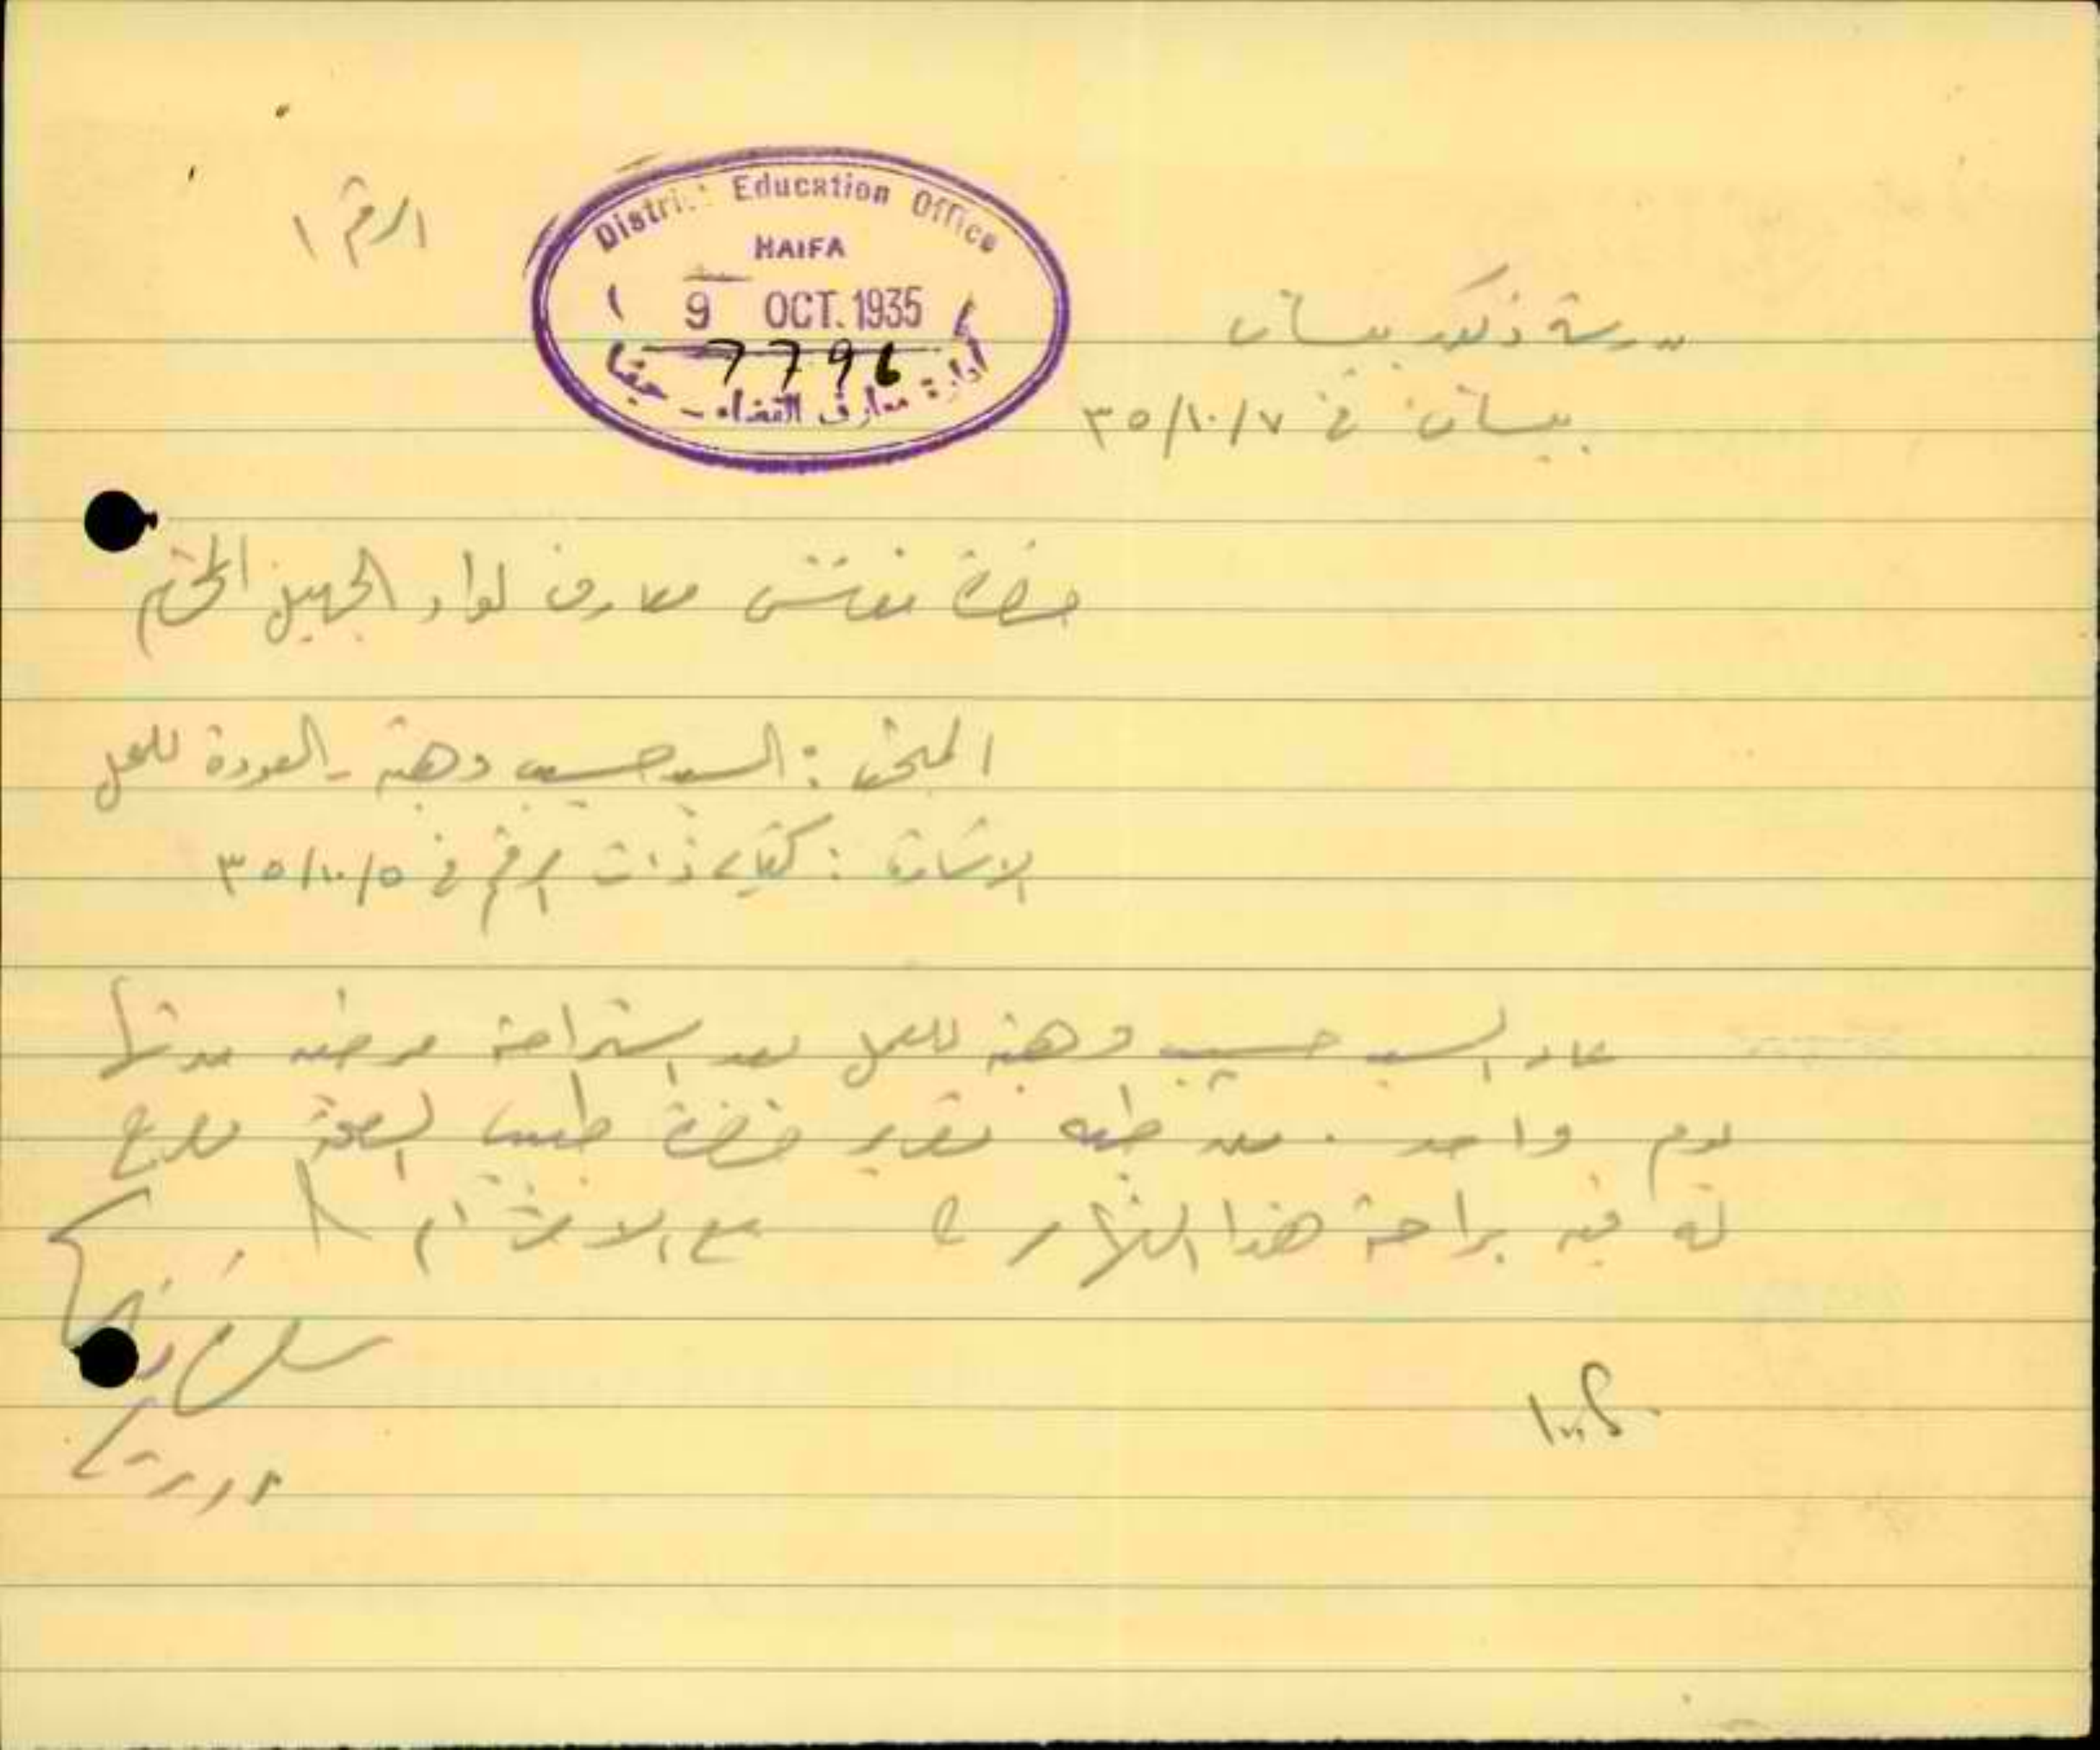 الرقم ١
District Education Office
HAIFA
9 OCT. 1935
7796
ادارة معارف القضاء - حيفا
مدرسة ذكور بيسان
بيسان في ٣٥/١٠/٧
حضرة مفتش معارف لواء الجليل المحترم
المبحث : السيد حسيب وهبه - العودة للعمل
الاشارة : كتابي ذات الرقم في ٣٥/١٠/٥
عاد السيد حسيب وهبه للعمل بعد استراحة مرضيه مدتها
يوم واحد . طيه تقرير حضرة طبيب الصحة
له فيه براحة هذا النهار
مع الاحترام